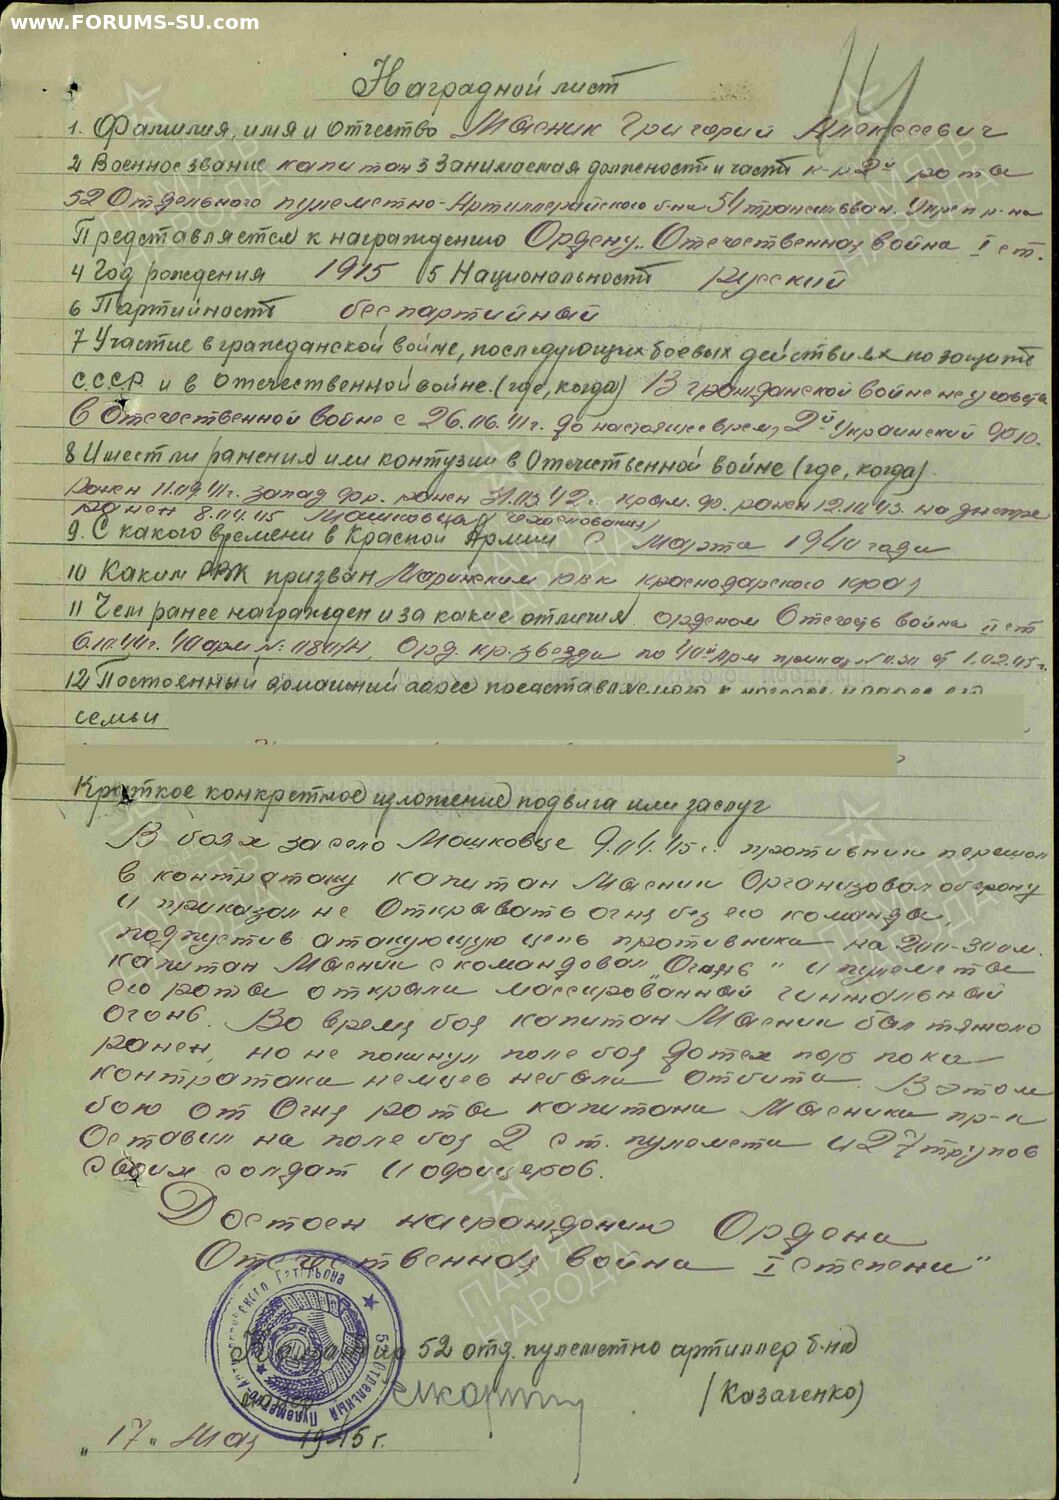 www.FORUMS-SU.com
Наградной лист
1. Фамилия, имя и Отчество Масник Григорий Алексеевич
2 Военное звание капитан 3 Занимаемая должность и часть к-р 2й рота
52 Отдельного пулеметно-Артиллерайского б-на 54 Укреп р-на
Представляется к награждению Ордену "Отечественная война I ст.
4 Год рождения 1915 5 Национальность русский
6 Партийность беспартийный
7 Участие в гражданской войне, последующих боевых действиях по защите
С.С.С.Р. и в Отечественной войне (где, когда) В гражданской войне не
В Отечественной войне с 26.06.41г. до настоящее время, 2й Украинский фро.
8 Имеет ли ранения или контузии в Отечественной войне (где, когда).
ранен 11.09.41г. запад фр. ранен 31.03.42г. крым. ф. ранен на днестре
ранен 8.04.45 Машковце
9. С какого времени в Красной Армии с Марта 1940 года
10 Каким РВК призван РВК Краснодарского края
11 Чем ранее награжден и за какие отличия орденом Отечеств война II ст
40 арм №. Орд. кр. звезда по 40й Арм приказ от 1.02.45г.
12 Постоянный домашний адрес
семьи
Краткое конкретное изложение подвига или заслуг
В боях за село Машковце 9.04.45г. противник перешол
в контратаку капитан Масник Организовал оборону
и приказал не Открывать огня без его команда,
подпустив атакующую цепь противника на 200-300м.
капитан Масник скомандовал "Огонь" и пулемета
его рота открали массированный кинжальный
огонь. Во время боя капитан Масник бал тяжоло
ранен, но не покинул поле боя до тех пор пока
контратака немцев небали отбита. В этом
бою от Огня рота капитана Масника пр-к
Оставил на поле боя 2 ст. пулемета и 27 трупов
своих солдат и офицеров.
Достоен награждения Ордена
Отечественная война I степени"
52 отд. пулеметно артиллер б-на
(Казаченко)
"17" Мая 1945г.